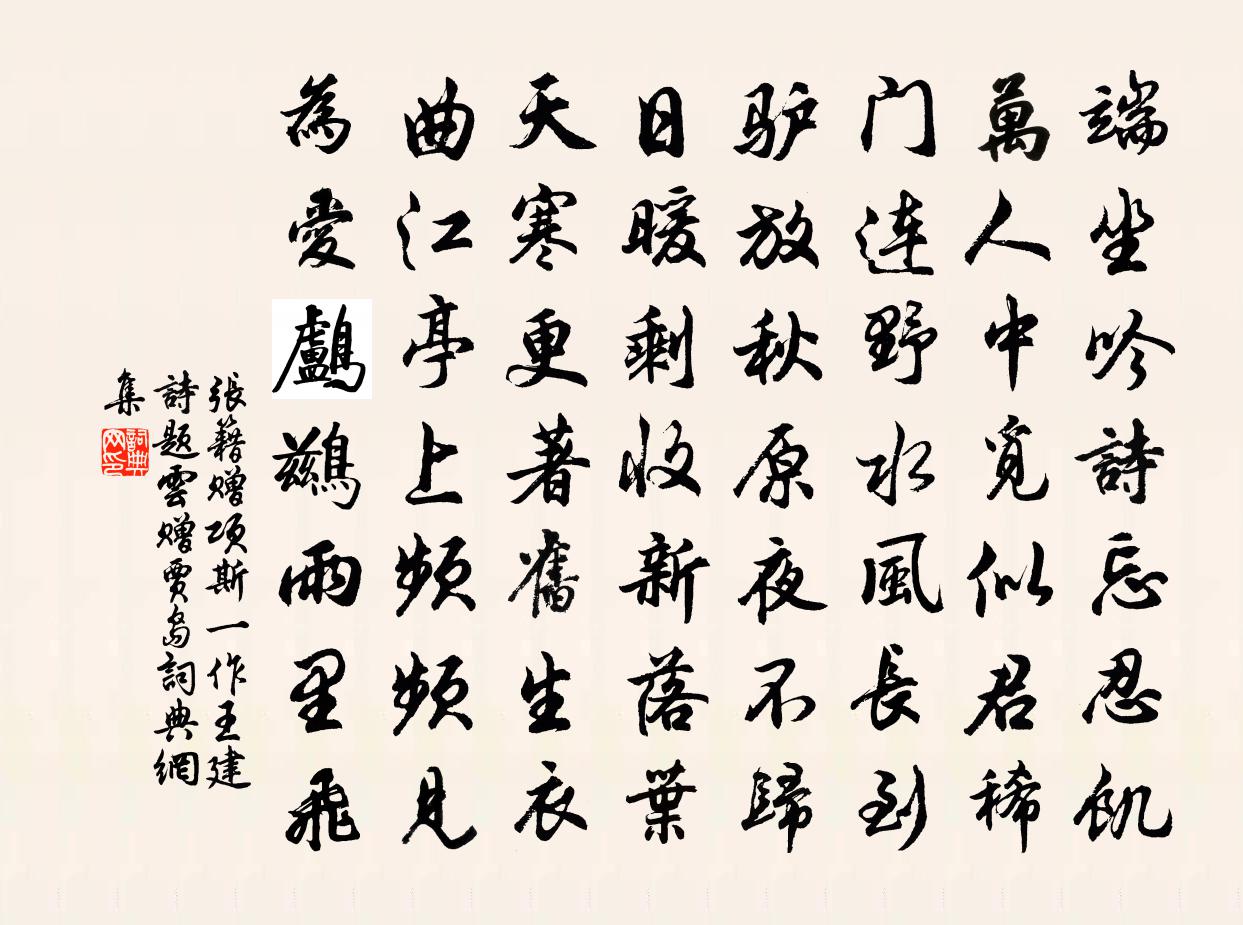 端坐吟詩忘忍飢
萬人中覓似君稀
门连野水風長到
驴放秋原夜不歸
日暖剩收新落葉
天寒更著舊生衣
曲江亭上頻頻見
為愛鸕鷀雨里飛
張籍赠項斯一作王建
詩題雲赠賈島詞典網
集
詞典
网印